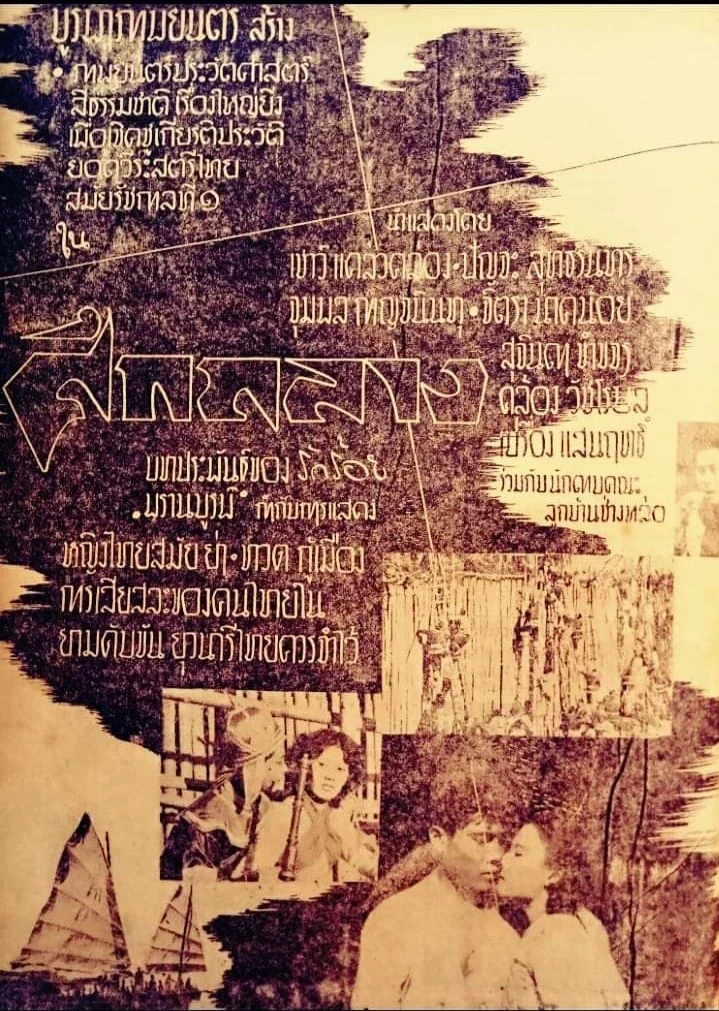 บูรพาภาพยนตร์ สร้าง
• ภาพยนตร์ประวัติศาสตร์
สีธรรมชาติ เรื่องใหญ่ยิ่ง
เพื่อเชิดชูเกียรติประวัติ
ยอดวีระสตรีไทย
สมัยรัชกาลที่ ๑
ใน
นำแสดงโดย
เชาว์ แคล่วคล่อง • ปัญจะ สุทธรินทร์
จุมพล กาญจนินทุ • จิตรา
ศึกถลาง
คล้อง
แสนฤทธิ์
ร่วมกับนักดาบคณะ
ลูกบ้านช่างหล่อ
บทประพันธ์ของ
"พรานบูรพ์" กำกับการแสดง
หญิงไทยสมัย ย่า • ทวด กู้เมือง
การเสียสละของคนไทยใน
ยามคับขัน ยุวนารีไทยควรจำไว้